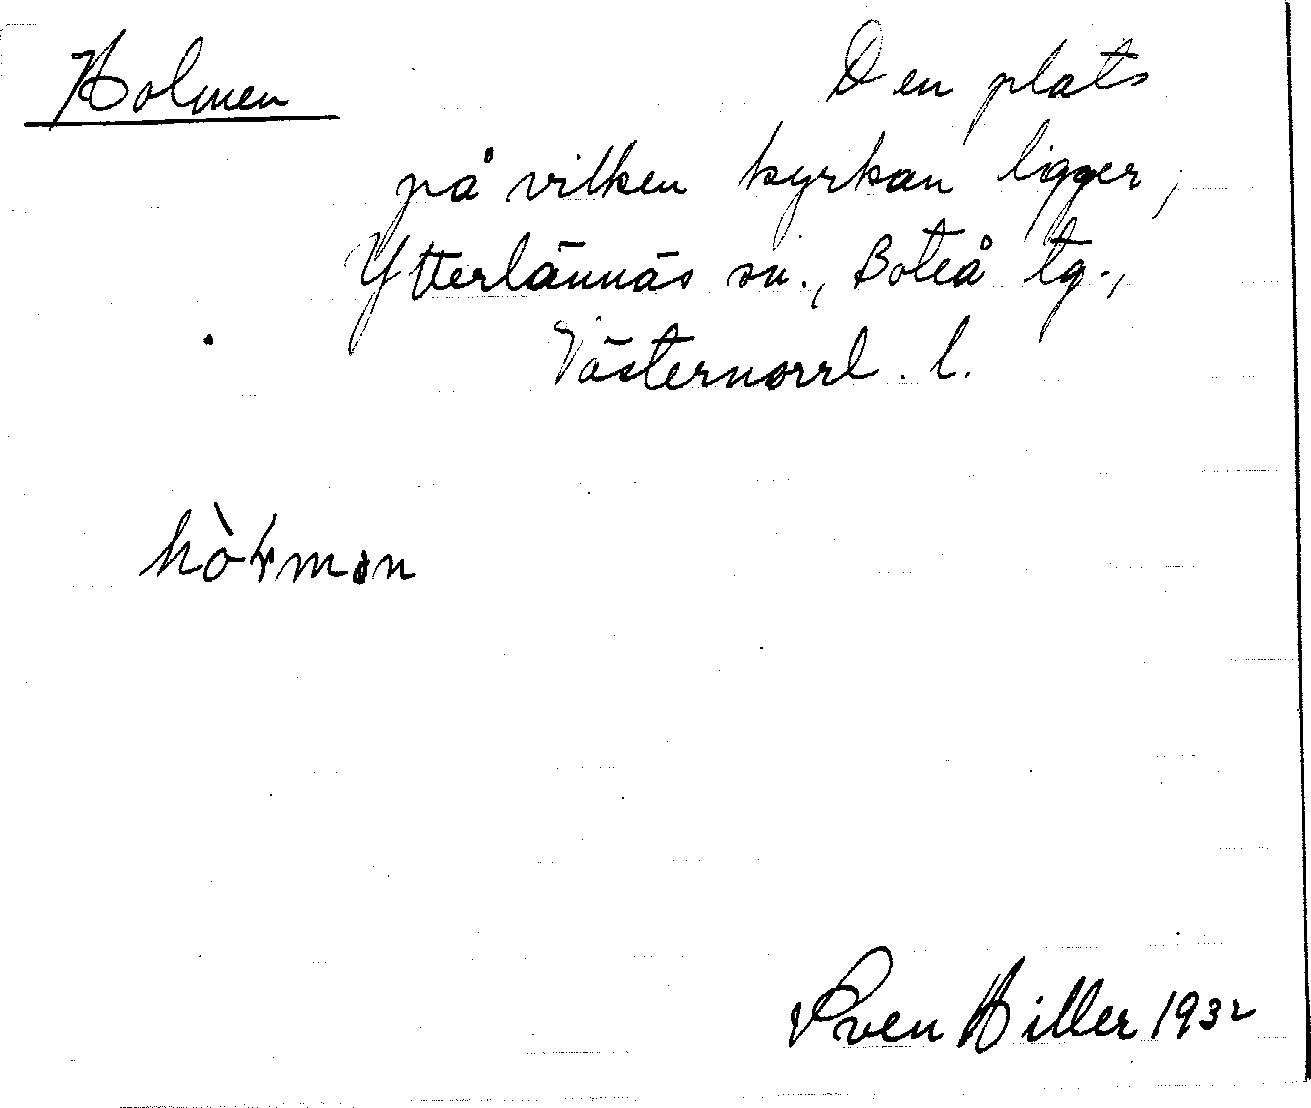 Holmen
Den plats
på vilken kyrkan ligger,
Ytterlännäs sn., Boteå tg.,
Västernorrl. l.
Sven Hiller 1932